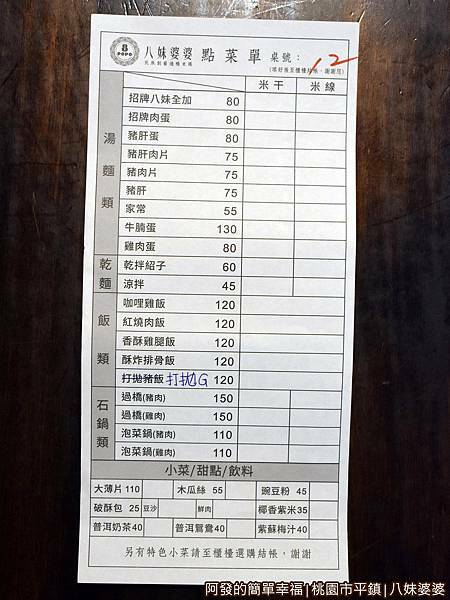 8
POPO
八妹婆婆 點菜單 桌號： 12
(填好後至櫃檯結帳，謝謝您)
米干 米線
湯麵類
招牌八妹全加 80
招牌肉蛋 80
豬肝蛋 80
豬肝肉片 75
豬肉片 75
豬肝 75
家常 55
牛腩蛋 130
雞肉蛋 80
乾麵
乾拌紹子 60
涼拌 45
飯類
咖哩雞飯 120
紅燒肉飯 120
香酥雞腿飯 120
酥炸排骨飯 120
打拋豬飯 打拋G 120
石鍋類
過橋(豬肉) 150
過橋(雞肉) 150
泡菜鍋(豬肉) 110
泡菜鍋(雞肉) 110
小菜/甜點/飲料
大薄片 110 木瓜絲 55 豌豆粉 45
破酥包 25 豆沙 鮮肉 椰香紫米35
普洱奶茶40 普洱鴛鴦40 紫蘇梅汁40
另有特色小菜請至櫃檯選購結帳，謝謝
阿發的簡單幸福|桃園市平鎮|八妹婆婆